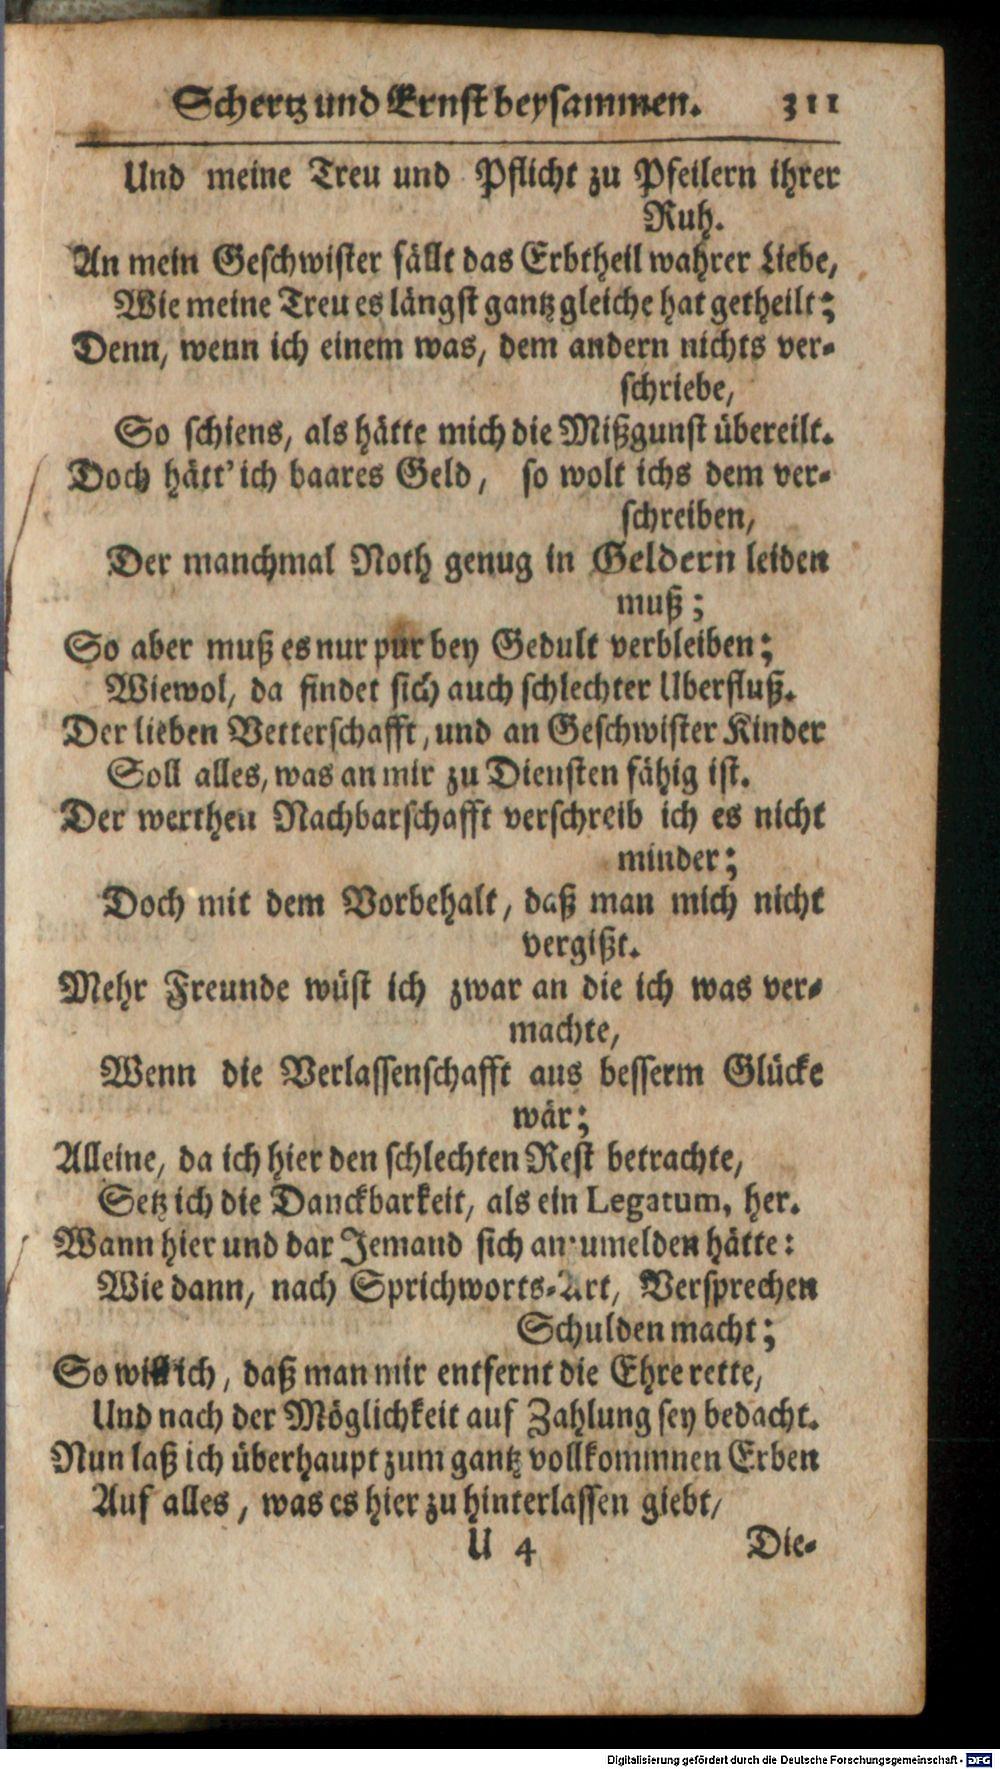 Schertz und Ernst beysammen. 311
Und meine Treu und Pflicht zu Pfeilern ihrer
Ruh.
An mein Geschwister fällt das Erbtheil wahrer Liebe,
Wie meine Treu es längst gantz gleiche hat getheilt;
Denn, wenn ich einem was, dem andern nichts ver-
schriebe,
So schiens, als hätte mich die Mißgunst übereilt.
Doch hätt' ich baares Geld, so wolt ichs dem ver-
schreiben,
Der manchmal Noth genug in Geldern leiden
muß;
So aber muß es nur pur bey Gedult verbleiben;
Wiewol, da findet sich auch schlechter Uberfluß.
Der lieben Vetterschafft, und an Geschwister Kinder
Soll alles, was an mir zu Diensten fähig ist.
Der werthen Nachbarschafft verschreib ich es nicht
minder;
Doch mit dem Vorbehalt, daß man mich nicht
vergißt.
Mehr Freunde wüst ich zwar an die ich was ver-
machte,
Wenn die Verlassenschafft aus besserm Glücke
wär;
Alleine, da ich hier den schlechten Rest betrachte,
Setz ich die Danckbarkeit, als ein Legatum, her.
Wann hier und dar Jemand sich anzumelden hätte:
Wie dann, nach Sprichworts-Art, Versprechen
Schulden macht;
So will ich, daß man mir entfernt die Ehre rette,
Und nach der Möglichkeit auf Zahlung sey bedacht.
Nun laß ich überhaupt zum gantz vollkommnen Erben
Auf alles, was es hier zu hinterlassen giebt,
U 4 Die-
Digitalisierung gefördert durch die Deutsche Forschungsgemeinschaft - DFG